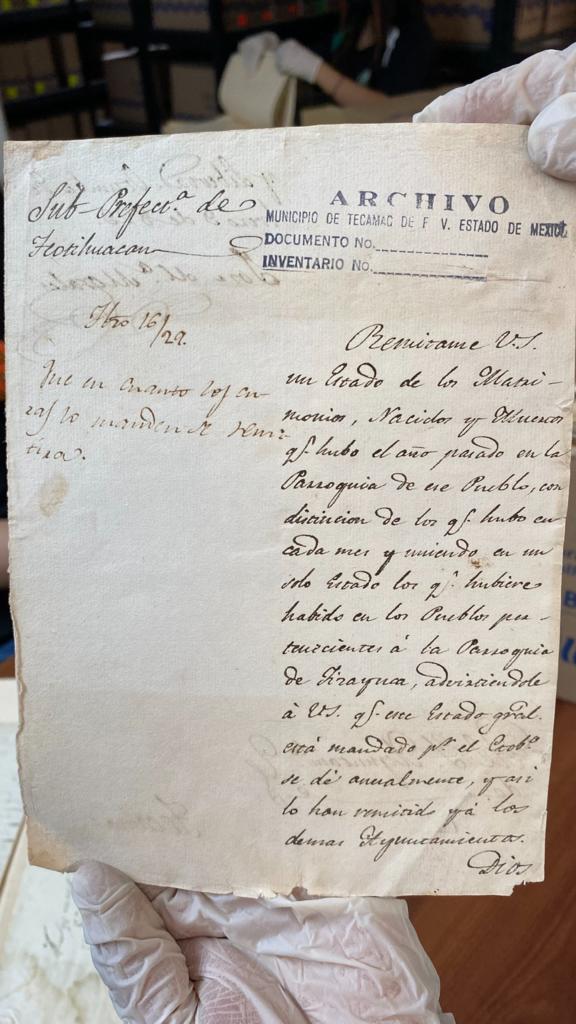 Sub-Prefect.ª de
Teotihuacan
ARCHIVO
MUNICIPIO DE TECAMAC DE F V. ESTADO DE MEXICO
DOCUMENTO No.
INVENTARIO No.
16/22.
Que en cuanto los cu-
ras lo manden se remi-
tira.
Remitame V.S.
un Estado de los Matri-
monios, Nacidos y Muertos
q.e hubo el año pasado en la
Parroquia de ese Pueblo, con
distincion de los q.e hubo en
cada mes y uniendo en un
solo Estado los q.e hubiere
habido en los Pueblos per-
tenecientes á la Parroquia
de Tizayuca, advirtiendole
á VS. q.e este Estado gral.
está mandado p.r el Gob.º
se dé anualmente, y asi
lo han remitido yá los
demas Ayuntamientos.
Dios